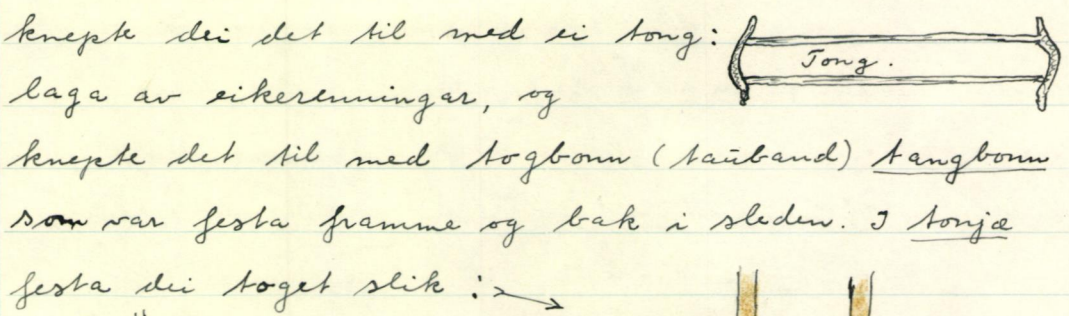 knepte dei det til med ei tong:
Tong.
laga av eikerenningar, og
knepte det til med togbonn (tauband) tangbonn
som var festa framme og bak i sleden. I tonjæ
festa dei toget slik :